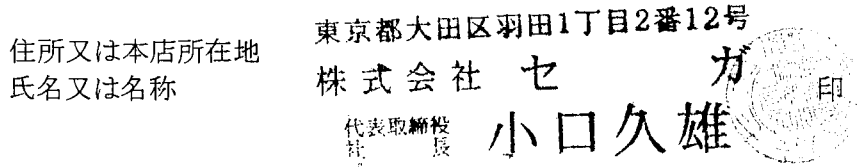 住所又は本店所在地
氏名又は名称
東京都大田区羽田1丁目2番12号
株式会社 セガ
代表取締役
社長
小口久雄
印